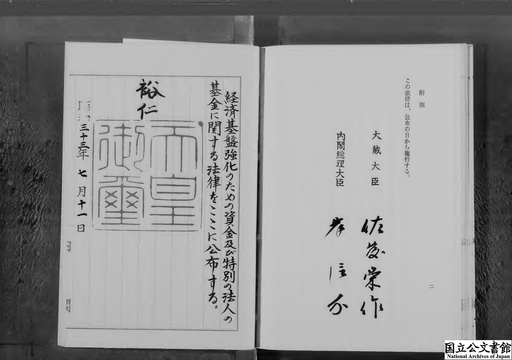 附則
この法律は、公布の日から施行する。
大蔵大臣 佐藤栄作
内閣総理大臣 岸信介
二
経済基盤強化のための資金及び特別の法人の
基金に関する法律をここに公布する。
裕仁
天皇
御璽
三十三年七月十一日
国立公文書館
National Archives of Japan